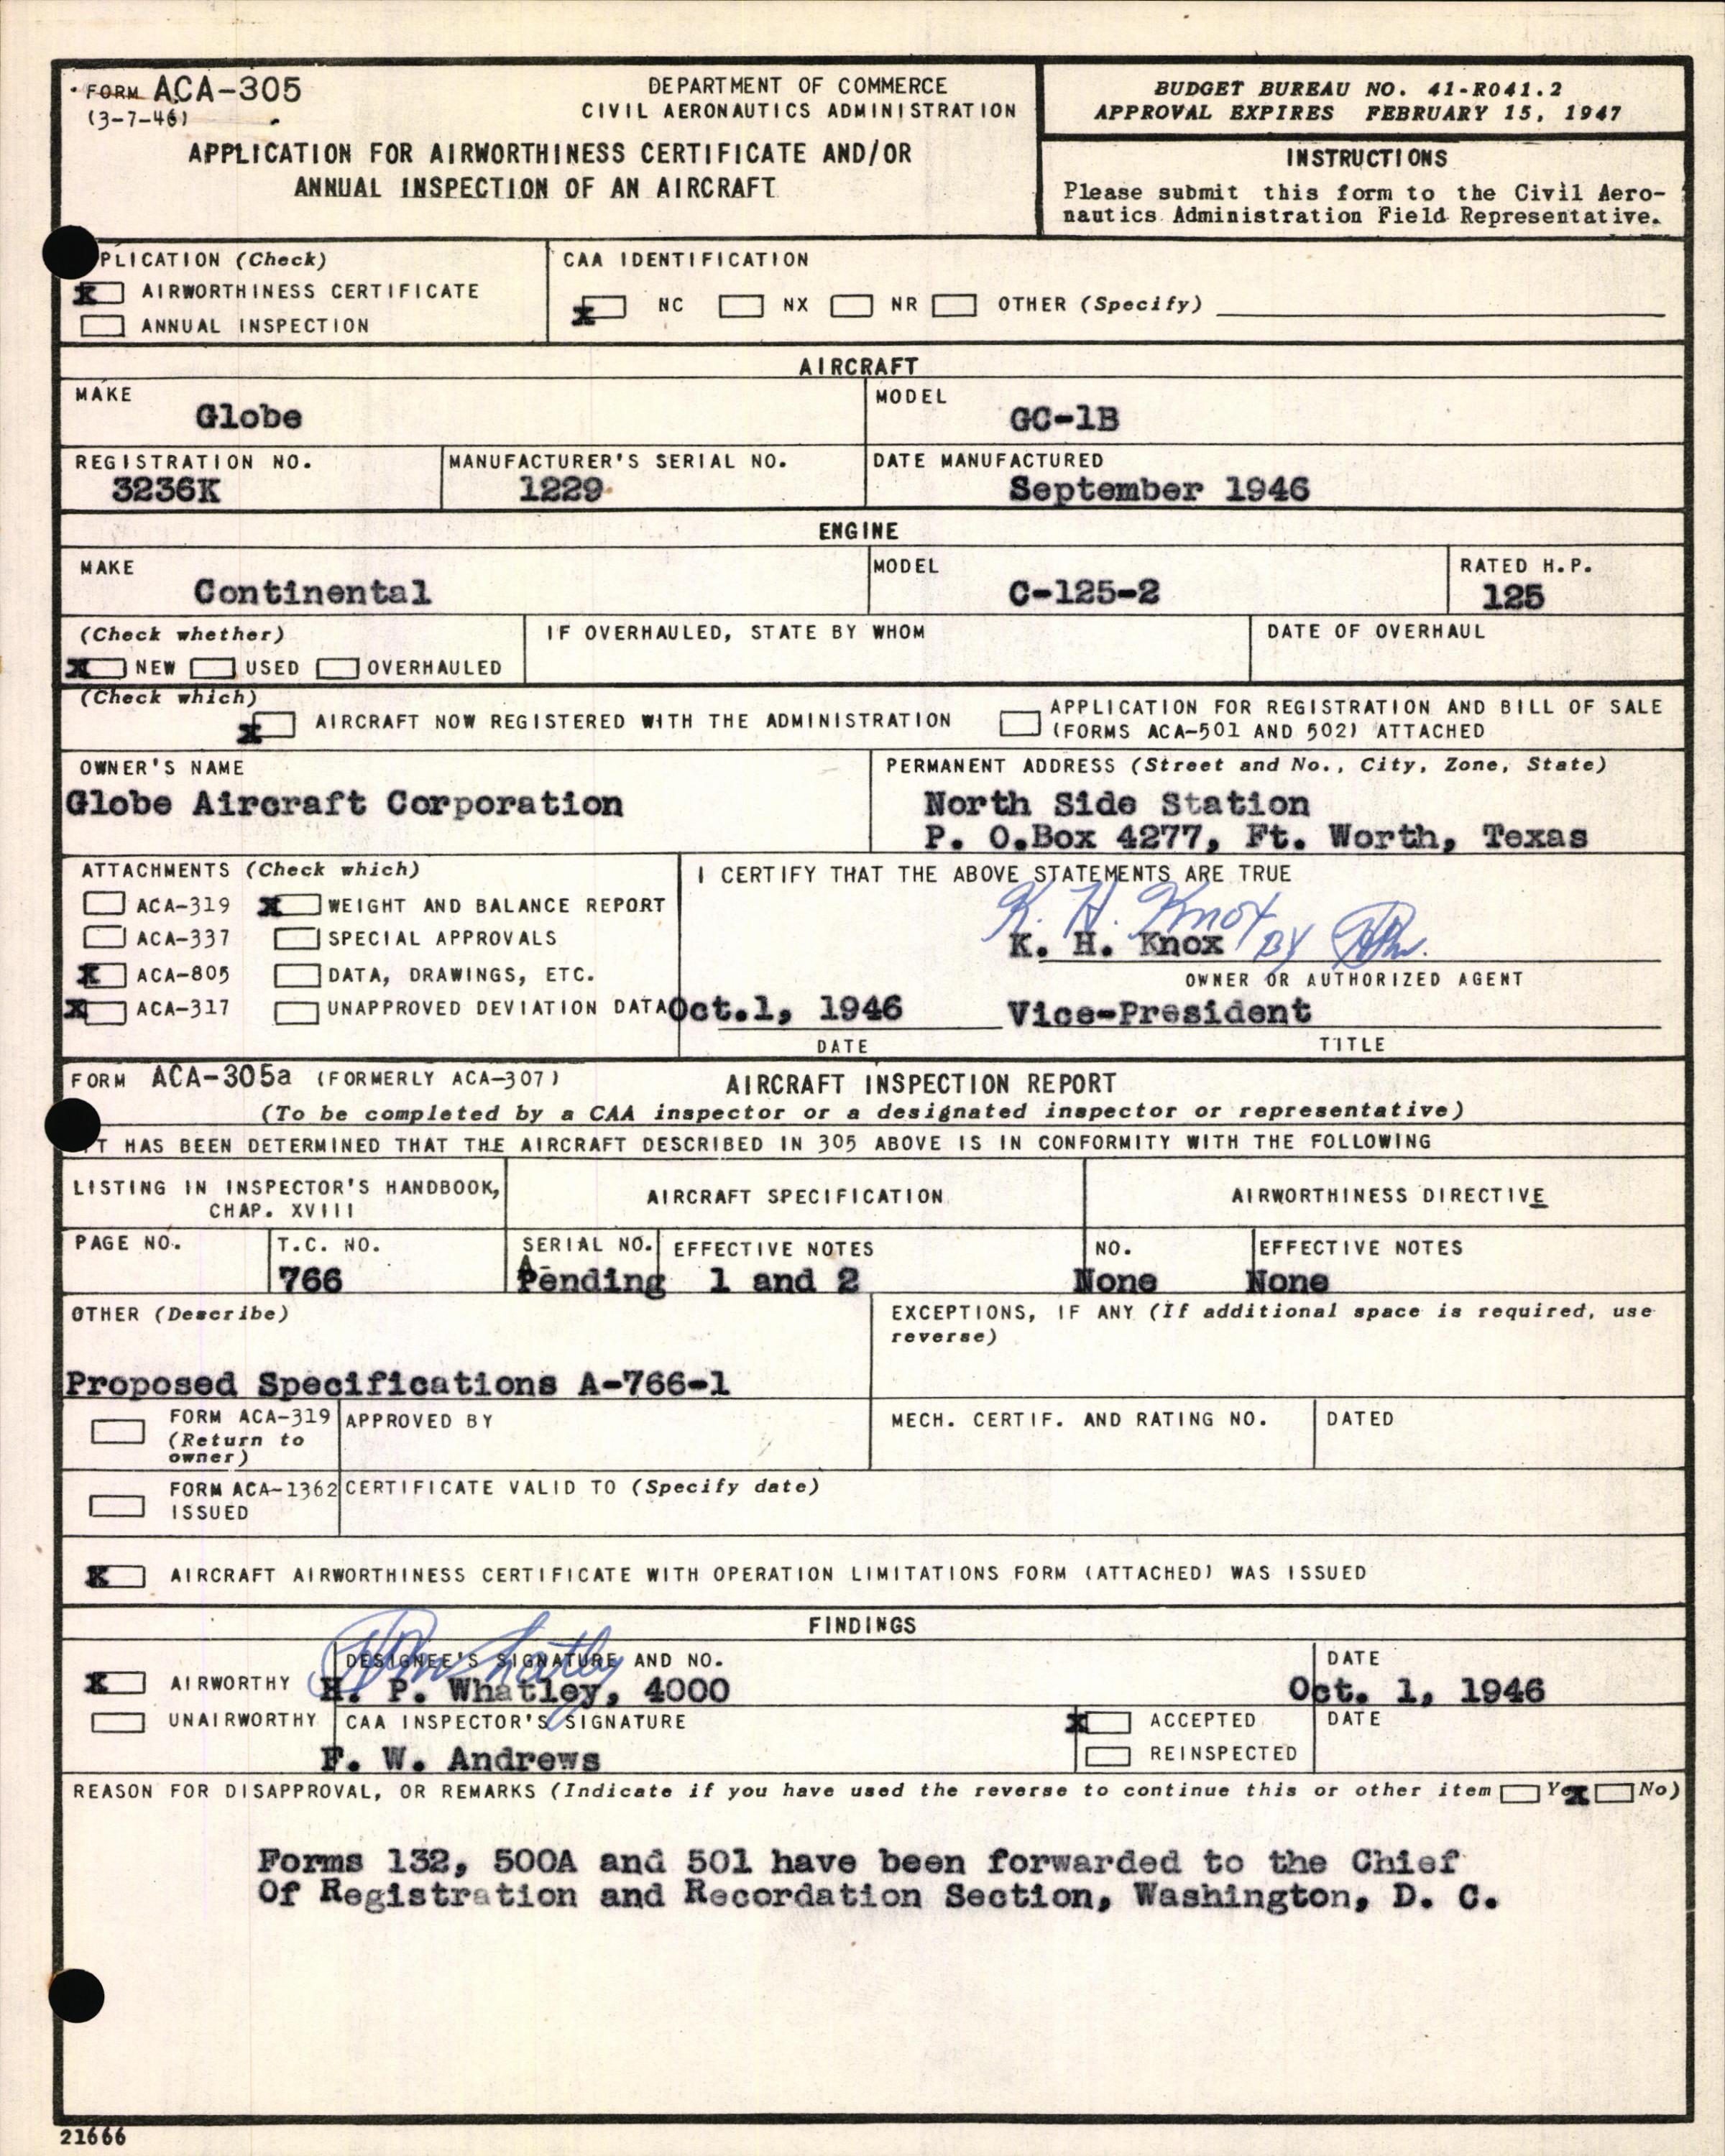 FORM ACA-305
(3-7-46)
DEPARTMENT OF COMMERCE
CIVIL AERONAUTICS ADMINISTRATION
APPLICATION FOR AIRWORTHINESS CERTIFICATE AND/OR
ANNUAL INSPECTION OF AN AIRCRAFT
BUDGET BUREAU NO. 41-R041.2
APPROVAL EXPIRES FEBRUARY 15, 1947
INSTRUCTIONS
Please submit this form to the Civil Aero-
nautics Administration Field Representative.
PLICATION (Check)
X AIRWORTHINESS CERTIFICATE
ANNUAL INSPECTION
CAA IDENTIFICATION
X NC NX NR OTHER (Specify)
AIRCRAFT
MAKE
Globe
MODEL
GC-1B
REGISTRATION NO.
3236K
MANUFACTURER'S SERIAL NO.
1229
DATE MANUFACTURED
September 1946
ENGINE
MAKE
Continental
MODEL
C-125-2
RATED H.P.
125
(Check whether)
X NEW USED OVERHAULED
IF OVERHAULED, STATE BY WHOM
DATE OF OVERHAUL
(Check which)
X AIRCRAFT NOW REGISTERED WITH THE ADMINISTRATION
APPLICATION FOR REGISTRATION AND BILL OF SALE
(FORMS ACA-501 AND 502) ATTACHED
OWNER'S NAME
Globe Aircraft Corporation
PERMANENT ADDRESS (Street and No., City, Zone, State)
North Side Station
P. O.Box 4277, Ft. Worth, Texas
ATTACHMENTS (Check which)
ACA-319 X WEIGHT AND BALANCE REPORT
ACA-337 SPECIAL APPROVALS
X ACA-805 DATA, DRAWINGS, ETC.
X ACA-317 UNAPPROVED DEVIATION DATA
I CERTIFY THAT THE ABOVE STATEMENTS ARE TRUE
K. H. Knox BY
K. H. Knox
OWNER OR AUTHORIZED AGENT
Oct.1, 1946 Vice-President
DATE TITLE
FORM ACA-305a (FORMERLY ACA-307) AIRCRAFT INSPECTION REPORT
(To be completed by a CAA inspector or a designated inspector or representative)
T HAS BEEN DETERMINED THAT THE AIRCRAFT DESCRIBED IN 305 ABOVE IS IN CONFORMITY WITH THE FOLLOWING
LISTING IN INSPECTOR'S HANDBOOK,
CHAP. XVIII
AIRCRAFT SPECIFICATION
AIRWORTHINESS DIRECTIVE
PAGE NO.
T.C. NO.
766
SERIAL NO.
A-
Pending
EFFECTIVE NOTES
1 and 2
NO.
None
EFFECTIVE NOTES
None
OTHER (Describe)
Proposed Specifications A-766-1
EXCEPTIONS, IF ANY (If additional space is required, use
reverse)
FORM ACA-319
(Return to
owner)
APPROVED BY
MECH. CERTIF. AND RATING NO.
DATED
FORM ACA-1362
ISSUED
CERTIFICATE VALID TO (Specify date)
X AIRCRAFT AIRWORTHINESS CERTIFICATE WITH OPERATION LIMITATIONS FORM (ATTACHED) WAS ISSUED
FINDINGS
X AIRWORTHY
UNAIRWORTHY
DESIGNEE'S SIGNATURE AND NO.
H. P. Whatley, 4000
DATE
Oct. 1, 1946
CAA INSPECTOR'S SIGNATURE
F. W. Andrews
X ACCEPTED
REINSPECTED
DATE
REASON FOR DISAPPROVAL, OR REMARKS (Indicate if you have used the reverse to continue this or other item Yes X No)
Forms 132, 500A and 501 have been forwarded to the Chief
Of Registration and Recordation Section, Washington, D. C.
21666